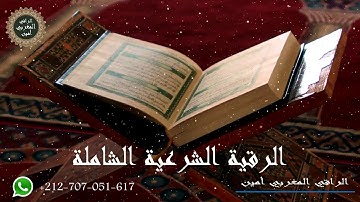 الراقي
المغربي
أمين
الرقية الشرعية الشاملة
+212-707-051-617
الراقي المغربي أمين